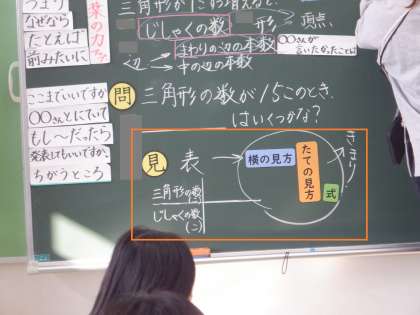 つまり
なぜなら
たとえば
前みたいに
葉の力
じしゃくの数
形
頂点
まわりの辺の本数
辺→中の辺の本数
〇〇さんが
言いたかったことは
ここまでいいですか
〇〇さんとにていて
もし〜だったら
発表してもいいですか
ちがうところ
問 三角形の数が15このとき、
はいくつかな?
見 表 →
横の見方
たての見方
式
きまり!
三角形の数
じしゃくの数
(こ)